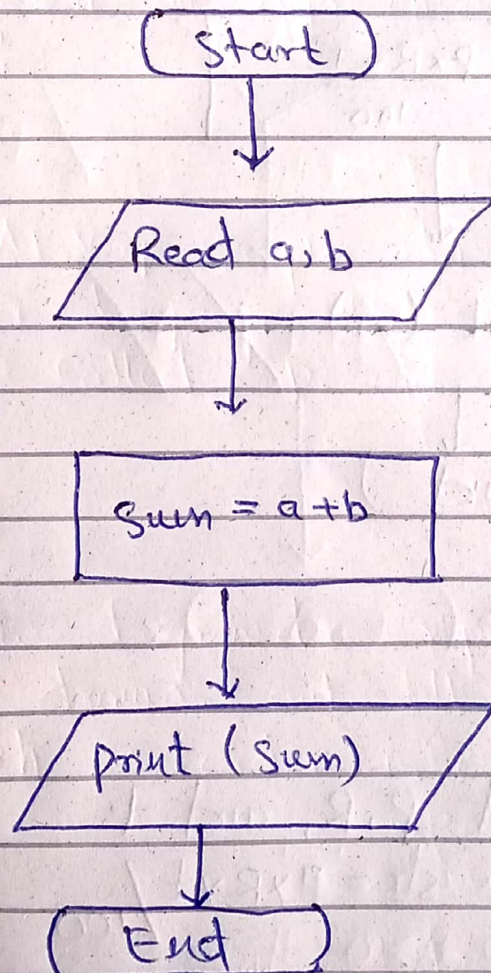 Start
Read a, b
Sum = a + b
print (Sum)
End